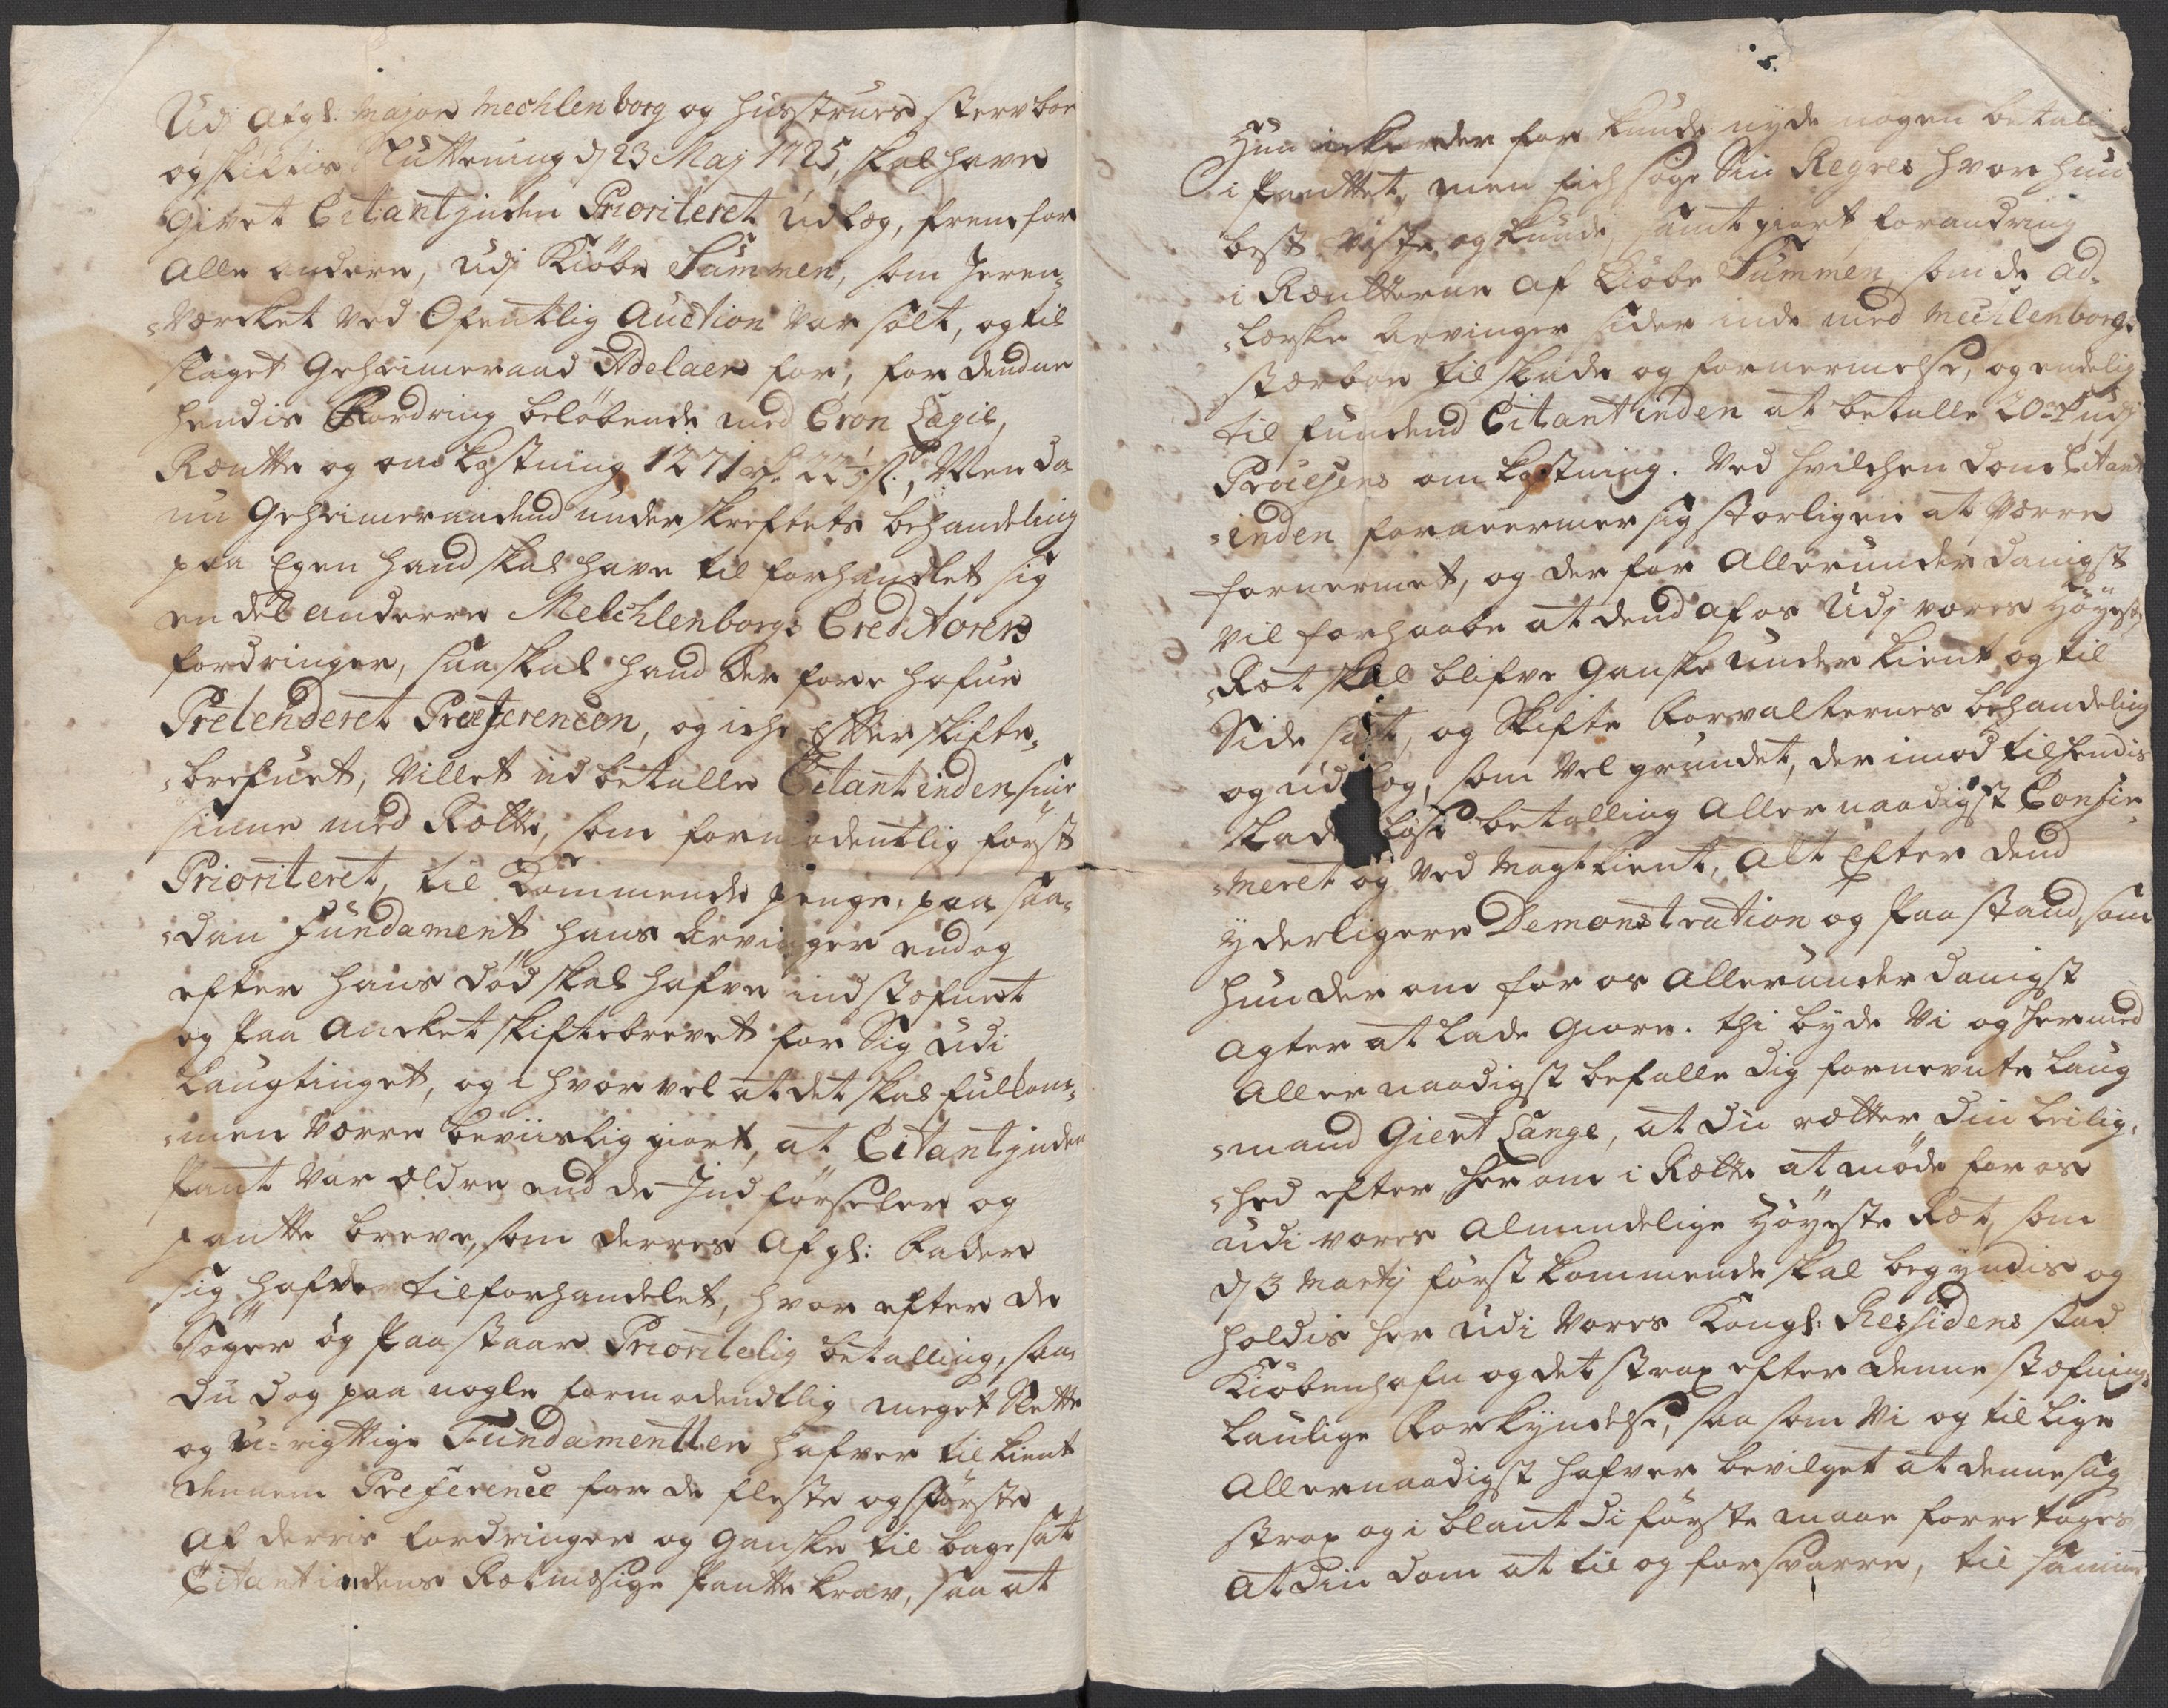 Udj Afgl: Major Mechlenborg og Hustrues sterboe
og skiftis Sluttening d 23 Maj 1725, skal have
Givet Citantjnden Prioriteret Udlæg, frem for
Alle andere, Udj Kiöbe Summen, som Jeren¬
værcket ved Ofentlig Auction var solt, og til
slaget Geheimeraad Adelaer for, for dend ne
hendis Fordring belöbende med Cron Lagie,
Rentte og omkostning 1271 rdr 22½ s., Men da
nu Geheimeraadend under skreftets behandeling
paa Egen Haand skal have til forhandlet sig
en del anderre Melchlenborgs Creditorers
fordringer, saa skal hand der fore hafue
Pretenderet Preferencen, og iche Efter skifte¬
brefuet, villet ud betalle Citantinden sine
sinne med Rette, som formodentlig först
Prioriteret, til Kommende penge, paa saa¬
dan Fundament hans Arvinger end og
efter hans död skal hafve indstefnet
og Paa Ancket skiftebrevet for Sig udi
Laugtinget, og i hvor vel at det skal fulkom¬
men verre beviislig giort, at Citantjnden
Pant var eldre end de Jndförseler og
pantte breve, som derres Afgl: Fader
sig hafde tilforhandelet, hvor efter de
Söger og Paastaar Prioritelig betalling, saa
du dog paa nogle formodendtlig meget Slette
og u-rigttige Fundamentter hafver til kient
dennem Preference for de fleste og störste
Af derris fordringer og Ganske til bage sat
Citantindens Retmesige Pantte krav, saa at
Hun icke der for kunde nyde nogen betaling
i Panttet, men sich söge Sin Regres hvor hun
best viste og kunde, samt giort forandring
i Rentterne af Kiöbe Summen, som de Ad¬
lerske Arvinger sider inde med Mechlenborgs
sterboe til skade og fornermelse, og endelig
til funded Citantinden at betalle 20 rdr udj
Processens omkostning. Ved hvilchen dom Citant
inden fornermer sig storligen at verre
fornermet, og der for Allerunderdanigst
vil forhaabe at dend af os Udj vores Höyeste
Ret skal blifve Ganske under kient og til
Side sat, og Skifte Forvalternes behandeling
og udlæg, som vel grundet, der imod til hendis
skadeslöse betalling Allernaadigst Confir¬
meret og ved Magt kient, Alt Efter dend
yderligere Demonstration og Paastand, som
hun der om for os Allerunderdanigst
Agter at lade Giöre. Thi byde Vi og hermed
Allernaadigst befalle dig fornevnte Laug
mand Giert Lange, at du retter din Leilig¬
hed efter, her om i Rette at möde for os
udi vores Almindelige Höyeste Ret, som
d 3 Martij förstkommende skal begyndis og
holdis her udi Vores Kongl: Ressidens stad
Kiöbenhafn og det strax efter denne stefnings
Laulige Forkyndelse, saa som Vi og tillige
Allernaadigst hafver bevilget at denne sag
strax og i blant di förste maae forretages
At din dom at til og forsvarre, til samme